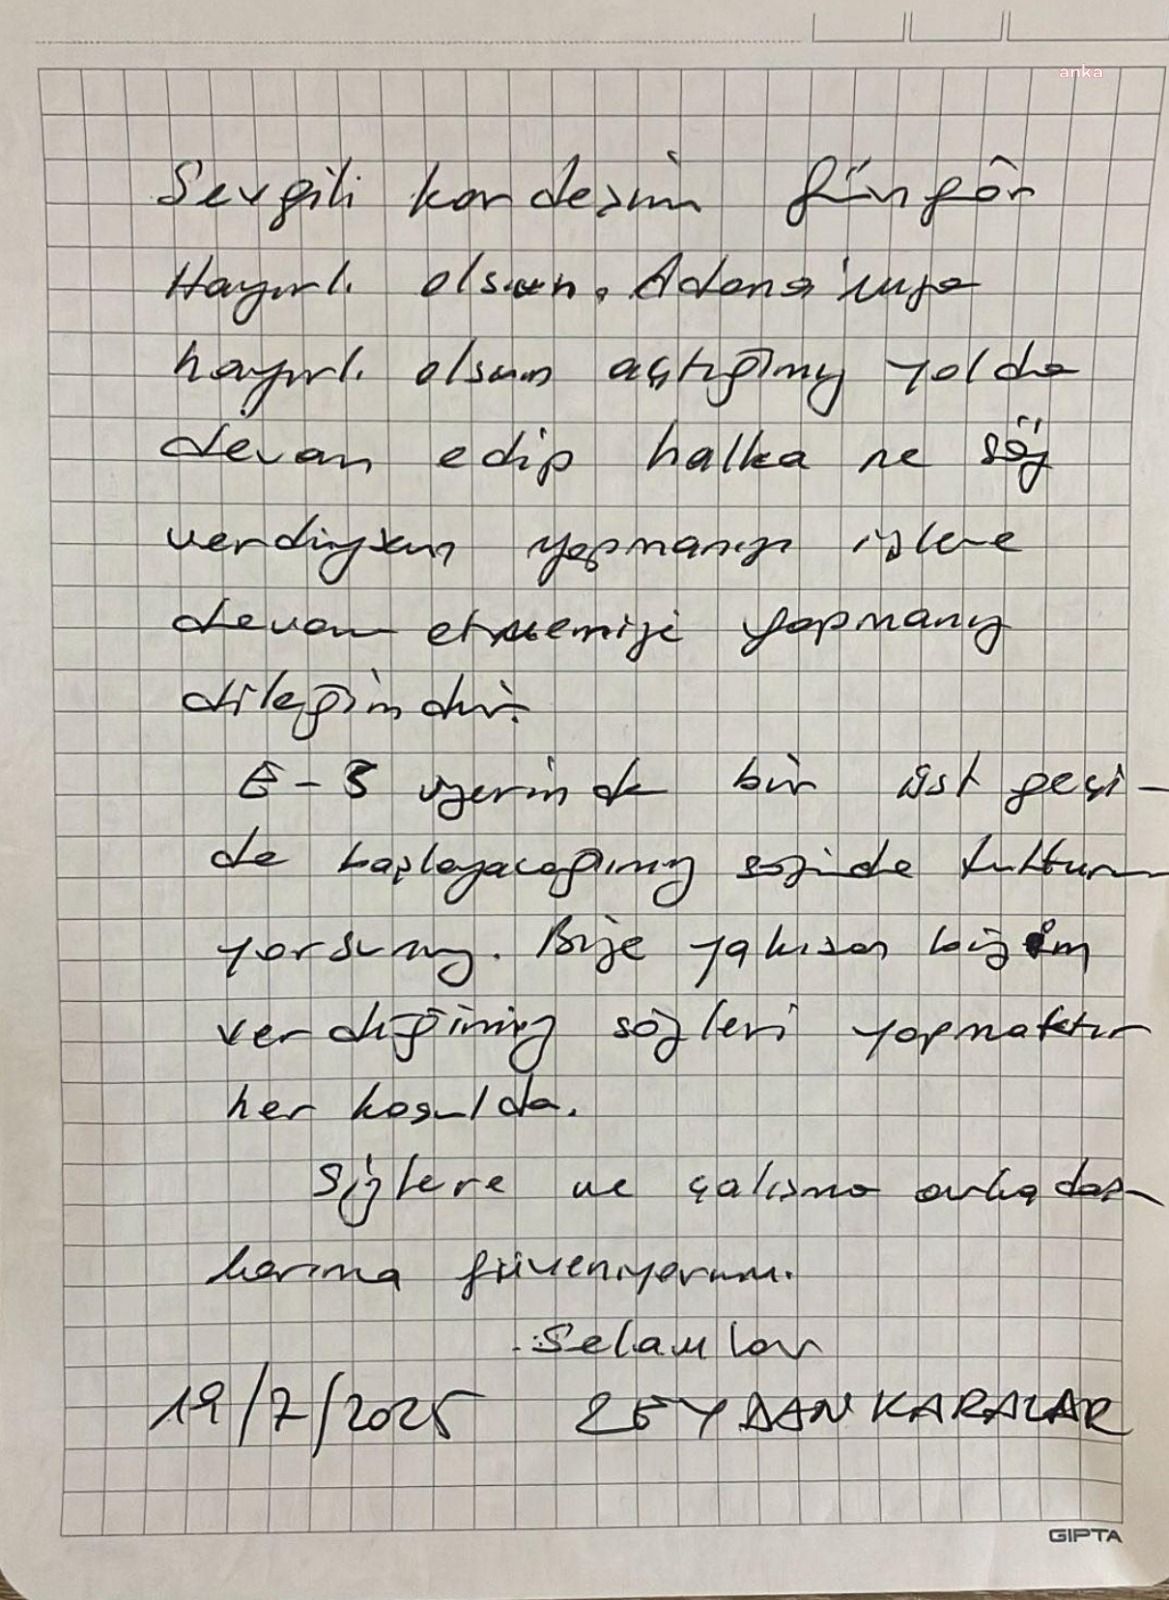 anka
Sevgili kardeşim Güngör
Hayırlı olsun. Adana'mıza
hayırlı olsun açtığımız yolda
devam edip halka ne söz
verdiysem yapmanızı işlere
devam etmemizi yapmanız
dileğimdir.
E-5 üzerinde bir üst geçi-
de başlayacağımız sözünde tuttun
yorsunuz. Bize yakışan bizim
verdiğimiz sözleri yapmaktır
her koşulda.
Sizlere ve çalışma arkadaş-
larıma güveniyorum.
Selamlar
19/7/2025 ZEYDAN KARALAR
GIPTA